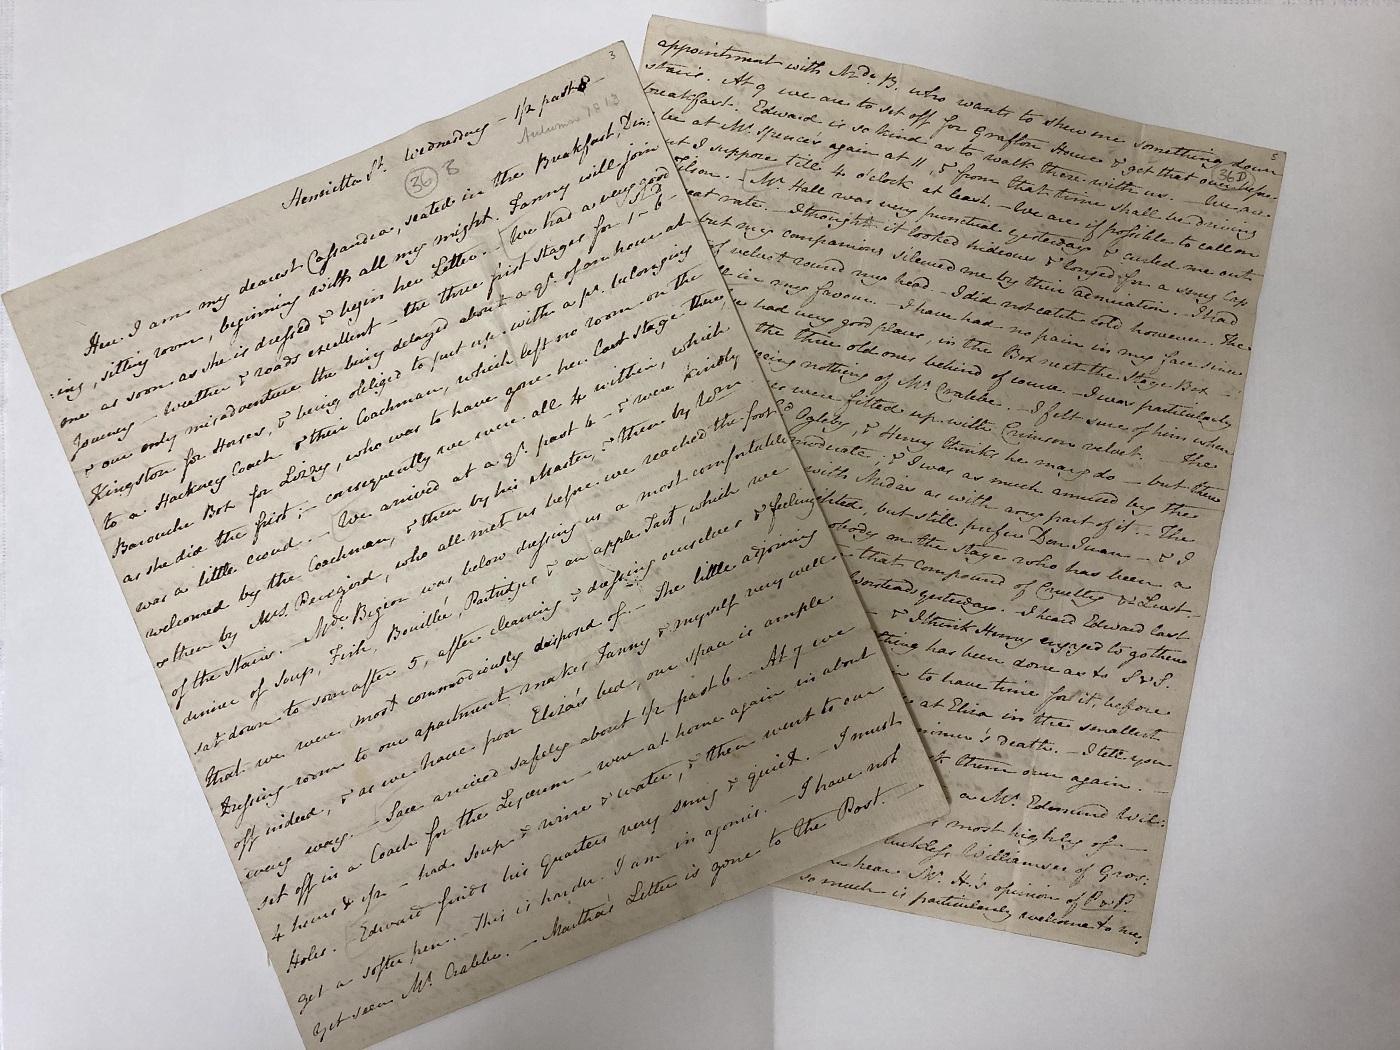 3
Henrietta St. Wednesday - 1/2 past 8 -
Autumn 1813
36 B
Here I am, my dearest Cassandra, seated in the Breakfast, Din:
:ing, sitting room, beginning with all my might. Fanny will join
me as soon as she is dressed & begin her Letter. We had a very good
Journey - weather & roads excellent - the three first stages for 1-6
& our only misadventure the being delayed about a qr. of an hour at
Kingston for Horses, & being obliged to put up with a pr. belonging
to a Hackney Coach & their Coachman, which left no room on the
Barouche Box for Lizzy, who was to have gone her last stage there
as she did the first; - consequently we were all 4 within, which
was a little crowd. - We arrived at a qr. past 4 - & were kindly
welcomed by the Coachman, & then by his Master, & then by Wm
& then by Mrs. Perigord, who all met us before we reached the foot
of the Stairs. - Mde. Bigeon was below dressing us a most comfortable
dinner of Soup, Fish, Bouillée, Partridges & an apple Tart, which we
sat down to soon after 5, after cleaning & dressing ourselves & feeling
that we were most commodiously disposed of. - The little adjoining
Dressing room to our apartment makes Fanny & myself very well
off indeed, & as we have poor Eliza's bed, our space is ample
every way. - Sace arrived safely about 1/2 past 6. - At 7 we
set off in a Coach for the Lyceum - were at home again in about
4 hours & 1/2 - had Soup & wine & water, & then went to our
Holes. Edward finds his Quarters very snug & quiet. - I must
get a softer pen. - This is harder. I am in agonies. - I have not
yet seen Mr. Crabbe. - Martha's Letter is gone to the Post. -
5
36 D
appointment with Mde. B. who wants to shew me something down
stairs. At 9 we are to set off for Grafton House & get that over before
breakfast. Edward is so kind as to walk there with us. - We are
be at Mr. Spence's again at 11, & from that time shall be driving
ut I suppose till 4 o'clock at least. - We are if possible to call on
Tilson. - Mr. Hall was very punctual yesterday & curled me out
eat rate. - I thought it looked hideous & longed for a snug Cap
but my companions silenced me by their admiration. I had
of velvet round my head. - I did not catch cold however. The
in my favour. - I have had no pain in my face since
had very good places, in the Box next the Stage Box -
the three old ones behind of course. - I was particularly
seeing nothing of Mr. Crabbe. - I felt sure of him when
were fitted up with Crimson velvet. The
Ogleby, & Henry thinks he may do - but there
moderate, & I was as much amused by the
with Midas as with any part of it. The
ghted, but still prefer Don Juan - & I
obody on the stage who has been a
that compound of Cruelty & Lust. -
Worsteds yesterday. I heard Edward last
& I think Henry engaged to go there
thing has been done as to S & S.
to have time for it, before
at Eliza in the smallest
's death. - I tell you
k them over again. -
a Mr. Edmund Wil:
most highly of -
Williamses of Gros:
hear Mr. H.'s opinion of P & P.
so much is particularly welcome to me.